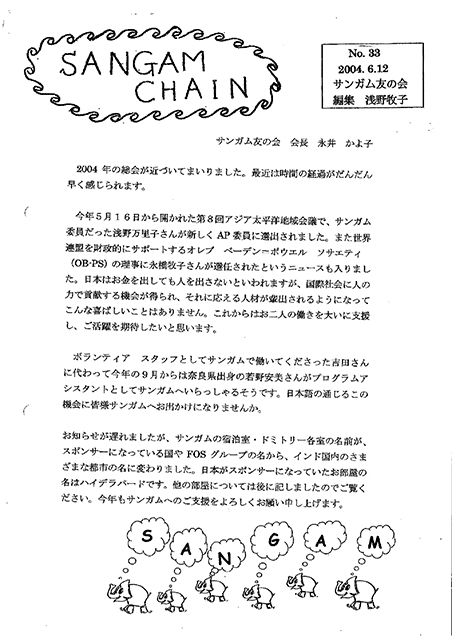 SANGAM
CHAIN
No. 33
2004. 6.12
サンガム友の会
編集　浅野牧子
サンガム友の会　会長　永井　かよ子
2004 年の総会が近づいてまいりました。最近は時間の経過がだんだん
早く感じられます。
今年５月１６日から開かれた第８回アジア太平洋地域会議で、サンガム
委員だった浅野万里子さんが新しく AP 委員に選出されました。また世界
連盟を財政的にサポートするオレブ　ベーデン＝ポウエル　ソサエティ
（OB-PS）の理事に永橋牧子さんが選任されたというニュースも入りまし
た。日本はお金を出しても人を出さないといわれますが、国際社会に人の
力で貢献する機会が得られ、それに応える人材が輩出されるようになって
こんな喜ばしいことはありません。これからはお二人の働きを大いに支援
し、ご活躍を期待したいと思います。
ボランティア　スタッフとしてサンガムで働いてくださった吉田さん
に代わって今年の９月からは奈良県出身の若野安美さんがプログラムア
シスタントとしてサンガムへいらっしゃるそうです。日本語の通じるこの
機会に皆様サンガムへお出かけになりませんか。
お知らせが遅れましたが、サンガムの宿泊室・ドミトリー各室の名前が、
スポンサーになっている国や FOS グループの名から、インド国内のさま
ざまな都市の名に変わりました。日本がスポンサーになっていたお部屋の
名はハイデラバードです。他の部屋については後に記しましたのでご覧く
ださい。今年もサンガムへのご支援をよろしくお願い申し上げます。
S A N G A M